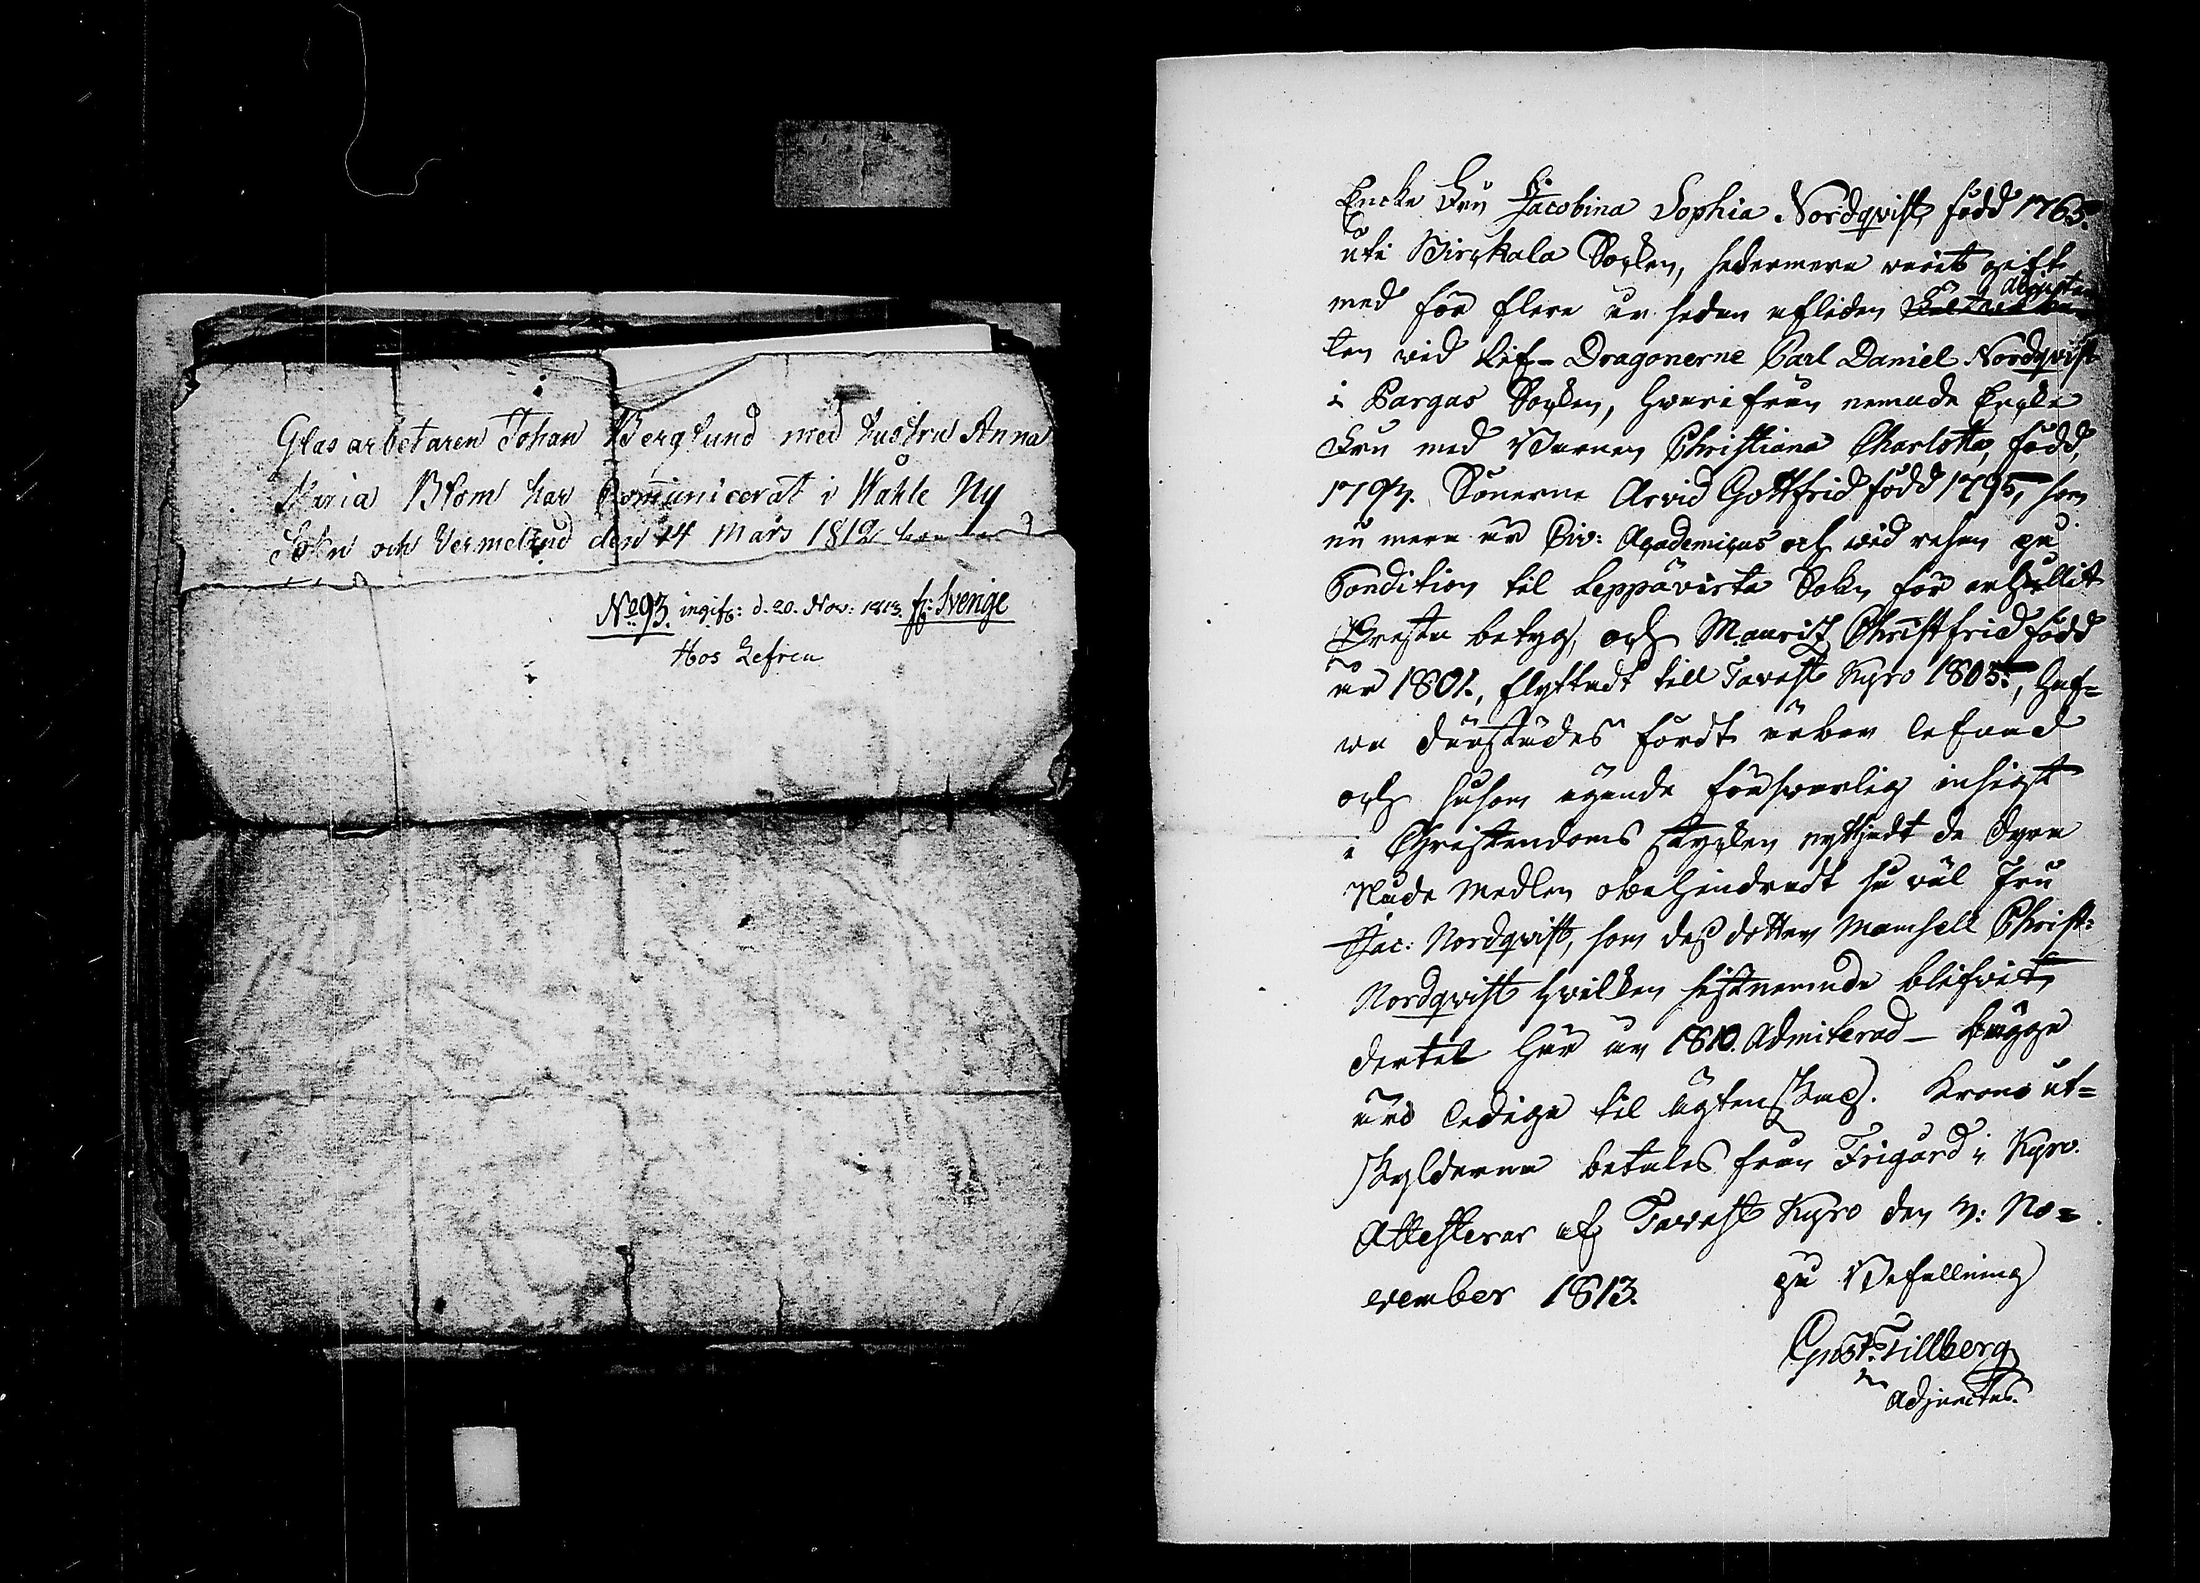 Glasarbetaren Johan Berglund med hustru Anna
Maria Blom har Comunicerat i Wåhle Ny
Sokn och Vermeland den 14 Mars 1812
No 93. ingifv: d. 20. Nov: 1813. fr: Svenge
Hos Zefren
Encke Fru Jacobina Sophia Nordqvist, född 1765.
uti Birckala Sochen, hedermera varit gift
med för flere år sedan afliden
ten vid Lif-Dragonerne Carl Daniel Nordqvist
i Pargas Sochen, hvarifrån nemnde Encke
Fru med Barnen Christiana Charlotta, född,
1793. Sönerne Arvid Gottfrid född 1795, som
nu mera är Civ: Academicus och vid resan på
Condition til Leppävirta Soknför erhållit
Presta betyg, och Mauritz Christfrid född
år 1801., flyttadt till Tavast Kyro 1805., haf=
va därstädes fördt ärbar lefnad
och såsom ägande försvarlig insigt
i Christendoms stycken nyttjadt de dyra
Nåde Medlen obehindradt så väl Fru
Jac: Nordqvist, som dess dotter Mamsell Christ:
Nordqvist hvilken sistnemnde blifvit,
dertil här år 1810. Admiterad - bägge
äro ledige til ägtenskap. Krono ut=
skylderna betalas från Frigård i Kyro.
Attesterar af Tavast Kyro den 3: No=
vember 1813.
på Befallning
Gust: Tillberg
Adjunctus.